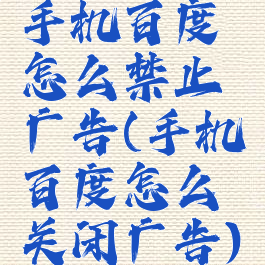 手机百度
怎么禁止
广告(手机
百度怎么
关闭广告)